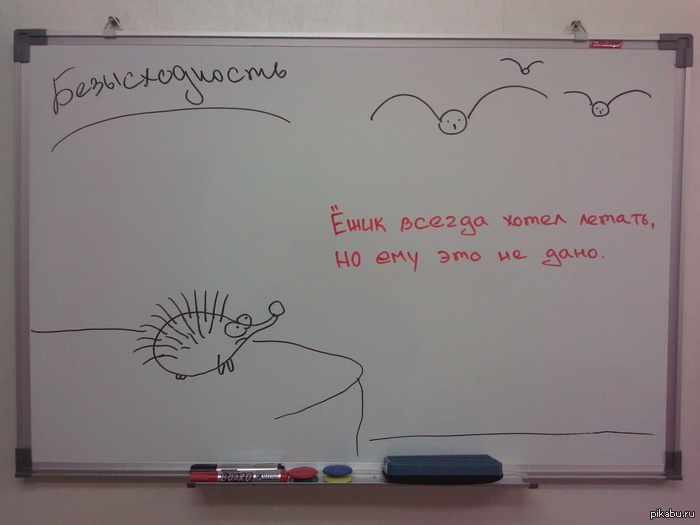 Безысходность
Ёжик всегда хотел летать,
но ему это не дано.
BOARD
pikabu.ru